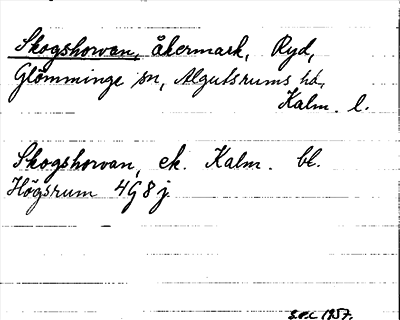 Skogshorvan, åkermark, Ryd,
Glömminge sn, Algutsrums hd,
Kalm. l.
Skogshorvan, ek. Kalm. bl.
Högsrum 4G8j.
1957.